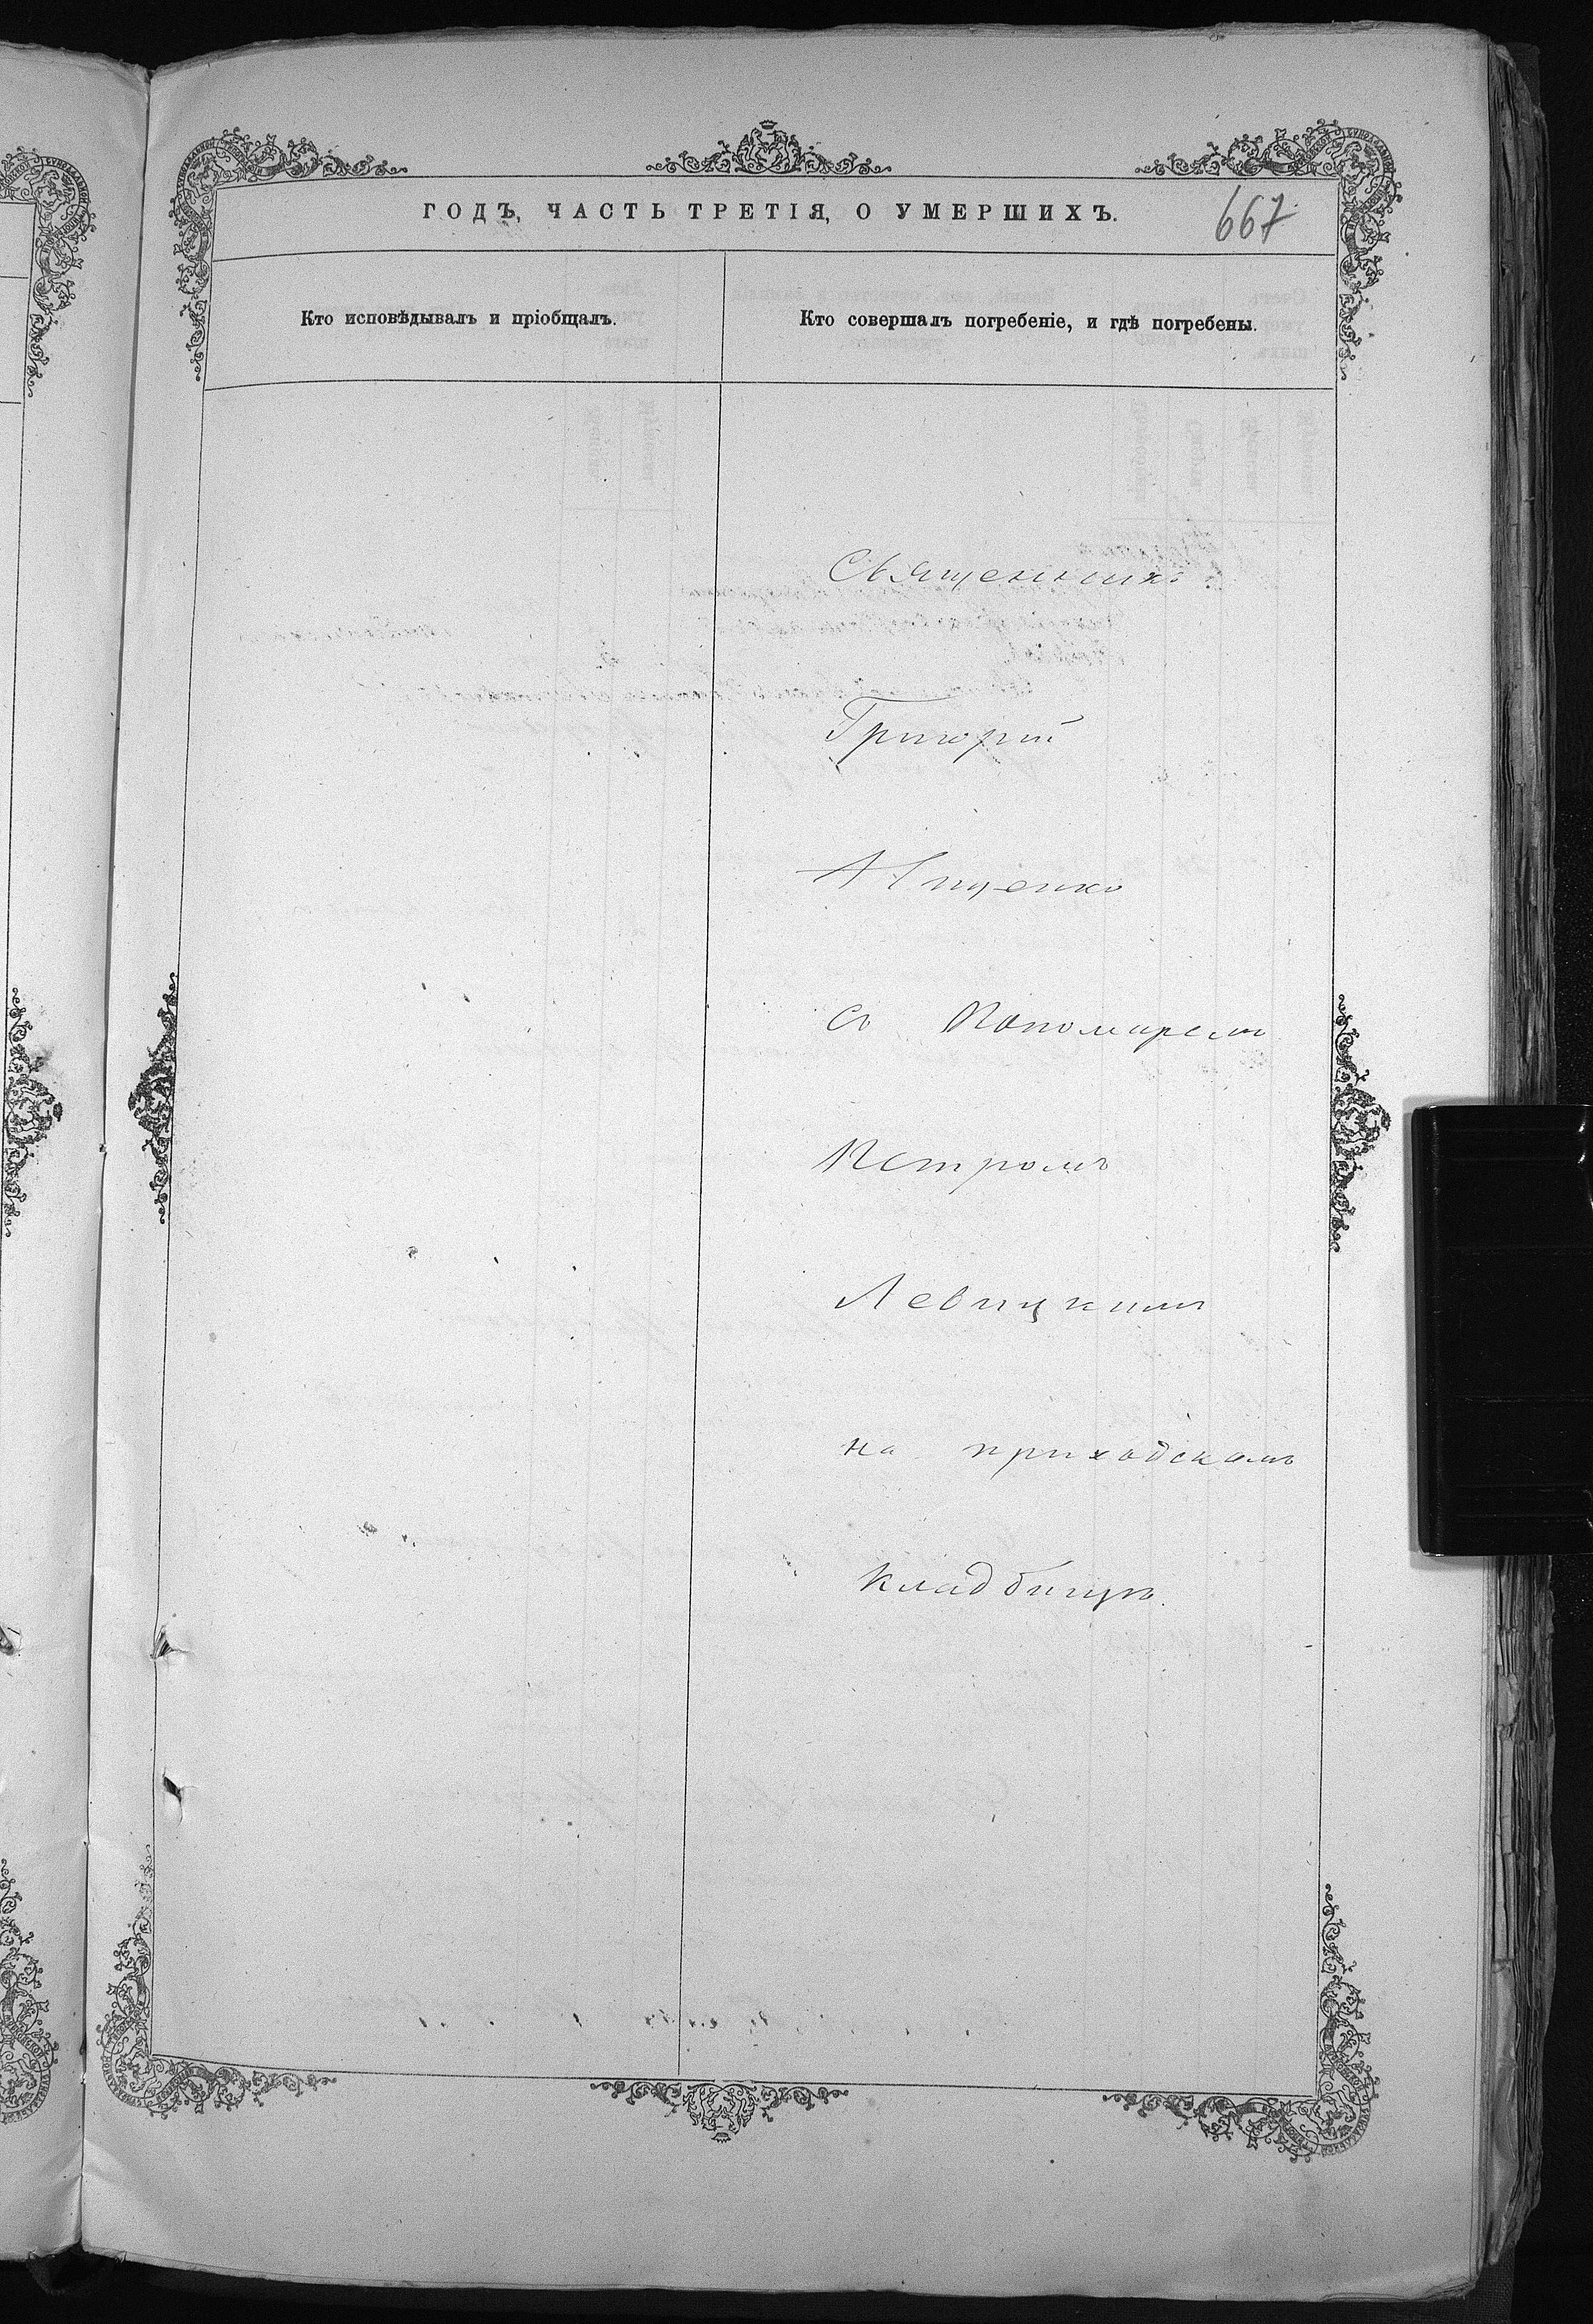 ГОДЪ, ЧАСТЬ ТРЕТІЯ, О УМЕРШИХЪ.
667
Кто исповѣдывалъ и пріобщалъ.
Кто совершалъ погребеніе, и гдѣ погребены.
Священникъ
Григорій
съ Пономаремъ
Петромъ
Левицкимъ
на приходскомъ
кладбищѣ.